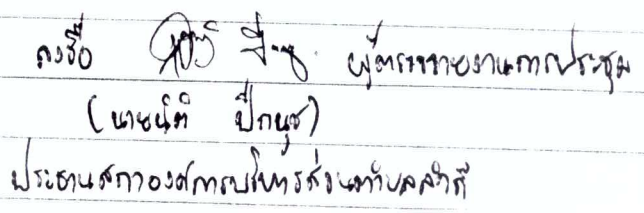 ลงชื่อ ผู้ตรวจรายงานการประชุม
(นายนิติ ปึกนุช)
ประธานสภาองค์การบริหารส่วนตำบล